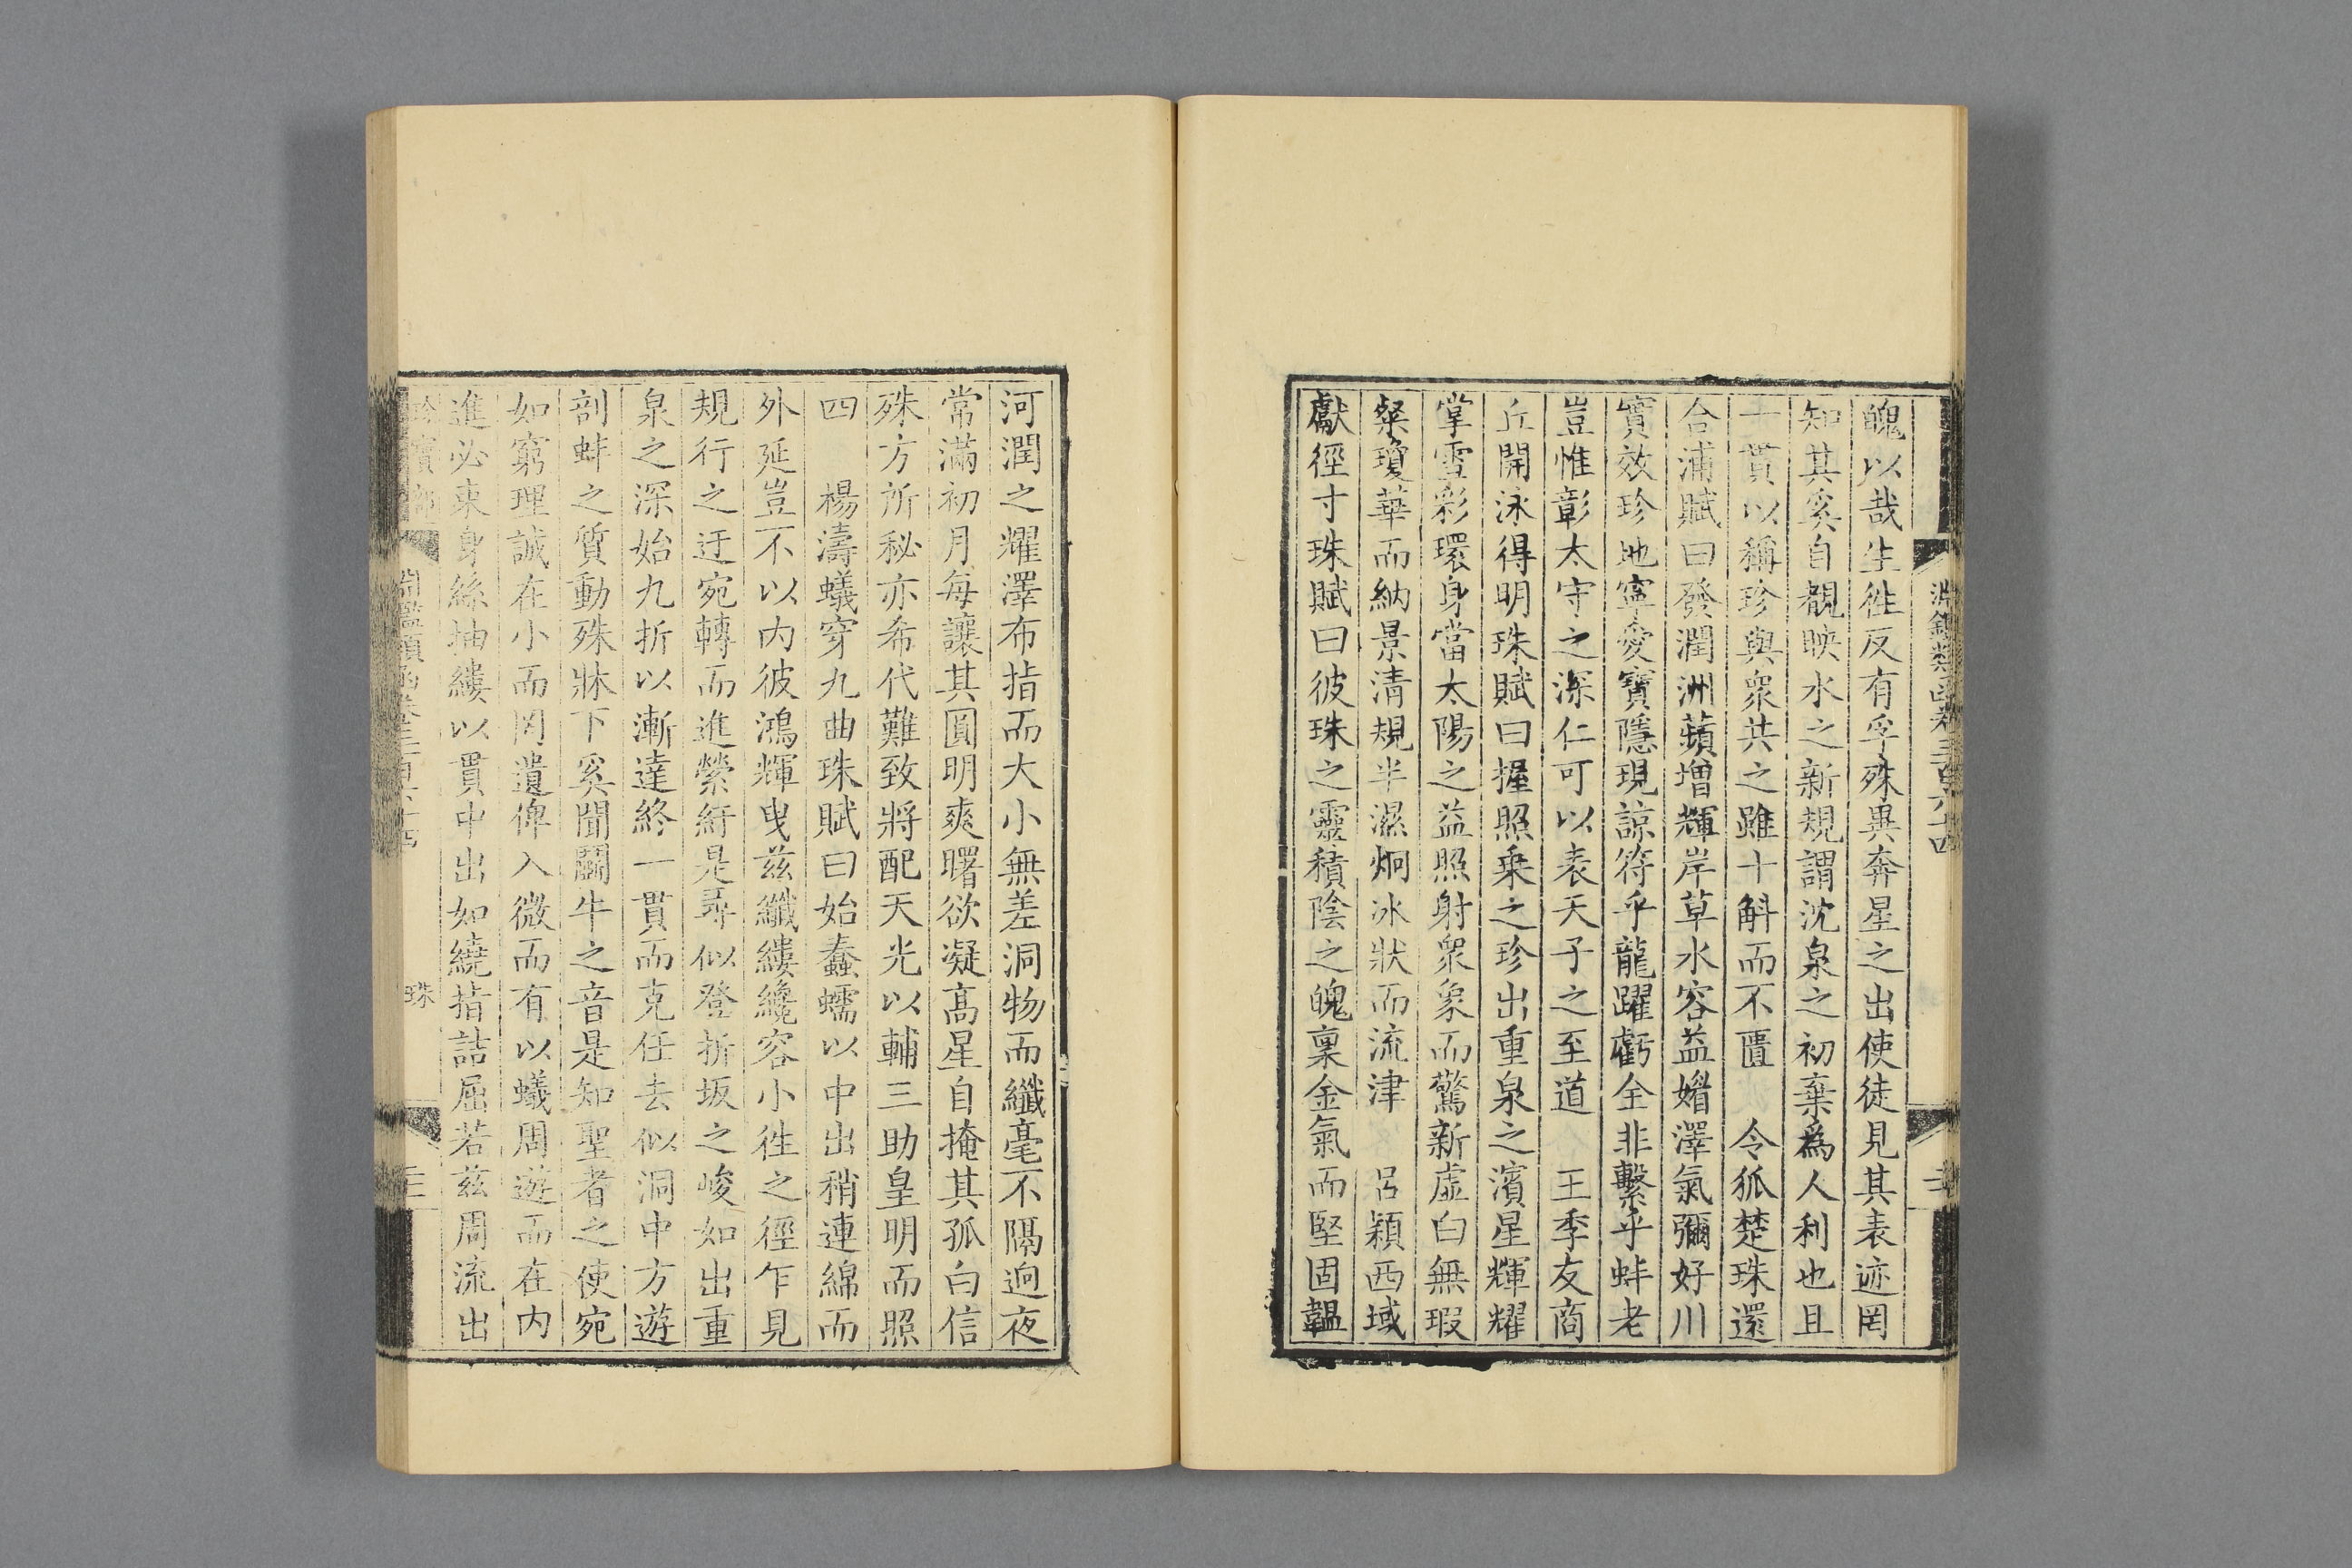 淵鑑類函卷三百六十四
魄以哉生徃反有孚殊異奔星之出使徒見其表迹罔
知其奚自覩映水之新規謂沈泉之初棄爲人利也且
十貫以稱珍與衆共之雖十斛而不匱　令狐楚珠還
合浦賦曰發潤洲蘋增輝岸草水容益媚澤氣彌好川
實效珍地寧愛寶隱現諒符乎龍躍虧全非繫乎蚌老
豈惟彰太守之深仁可以表天子之至道　王季友商
丘開泳得明珠賦曰握照乗之珍出重泉之濱星輝耀
掌雪彩環身當太陽之益照射衆象而驚新虛白無瑕
粲瓊華而納景清規半濕炯冰狀而流津　呂穎西域
獻徑寸珠賦曰彼珠之靈積陰之魄稟金氣而堅固韞
河潤之耀澤布指而大小無差洞物而纖毫不隔逈夜
常滿初月每讓其圓明爽曙欲凝高星自掩其孤白信
殊方所秘亦希代難致將配天光以輔三助皇明而照
四　楊濤蟻穿九曲珠賦曰始蠢蠕以中出稍連綿而
外延豈不以内彼鴻輝曳兹纖縷纔容小徃之徑乍見
規行之迂宛轉而進縈紆是尋似登折坂之峻如出重
泉之深始九折以漸達終一貫而克任去似洞中方遊
剖蚌之質動殊牀下奚聞鬭牛之音是知聖者之使宛
如窮理誠在小而罔遺俾入微而有以蟻周遊而在内
進必束身絲抽縷以貫中出如繞指詰屈若兹周流出
珠